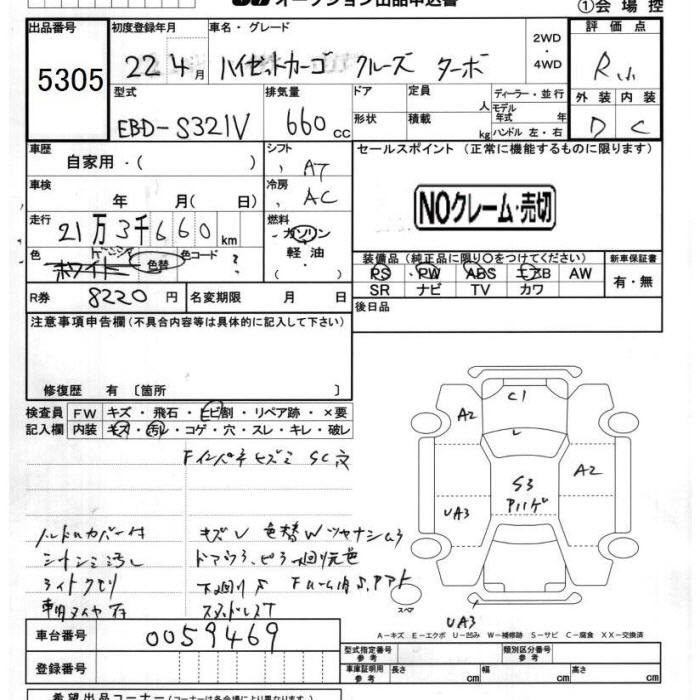 オークション出品申込書
①会場控
出品番号
5305
初度登録年月
22 4月
車名・グレード
ハイゼットカーゴ クルーズ ターボ
2WD
・
4WD
評価点
R
外装 内装
D C
型式
EBD-S321V
排気量
660 cc
ドア
形状
定員
人
積載
kg
ディーラー・並行
モデル
年式 年
ハンドル 左・右
車歴
自家用・( )
シフト
AT
セールスポイント (正常に機能するものに限ります)
NOクレーム・売切
車検
年 月( 日)
冷房
AC
走行
21万3千660km
燃料
ガソリン
軽油
色
ホワイト
色替
色コード
?
装備品 (純正品に限り○をつけてください)
PS PW ABS エアB AW
SR ナビ TV カワ
新車保証書
有・無
R券
8220 円
名変期限 月 日
後日品
注意事項申告欄(不具合内容等は具体的に記入して下さい)
修復歴 有〔箇所 〕
検査員
記入欄
FW キズ・飛石・ヒビ割・リペア跡・×要
内装 キズ・汚レ・コゲ・穴・スレ・キレ・破レ
ハンドルカバー付
キズU 色替Wツヤナシムラ
ライトクモリ
スタッドレス
C1
A2
A2
S3
UA3
UA3
スペア
A−キズ E−エクボ U−凹み W−補修跡 S−サビ C−腐食 XX−交換済
車台番号
0059469
登録番号
型式指定番号
参考
類別区分番号
参考
車庫証明用
参考
長さ cm
幅 cm
高さ cm
希望出品コーナー(コーナーは各会場により異なります。)